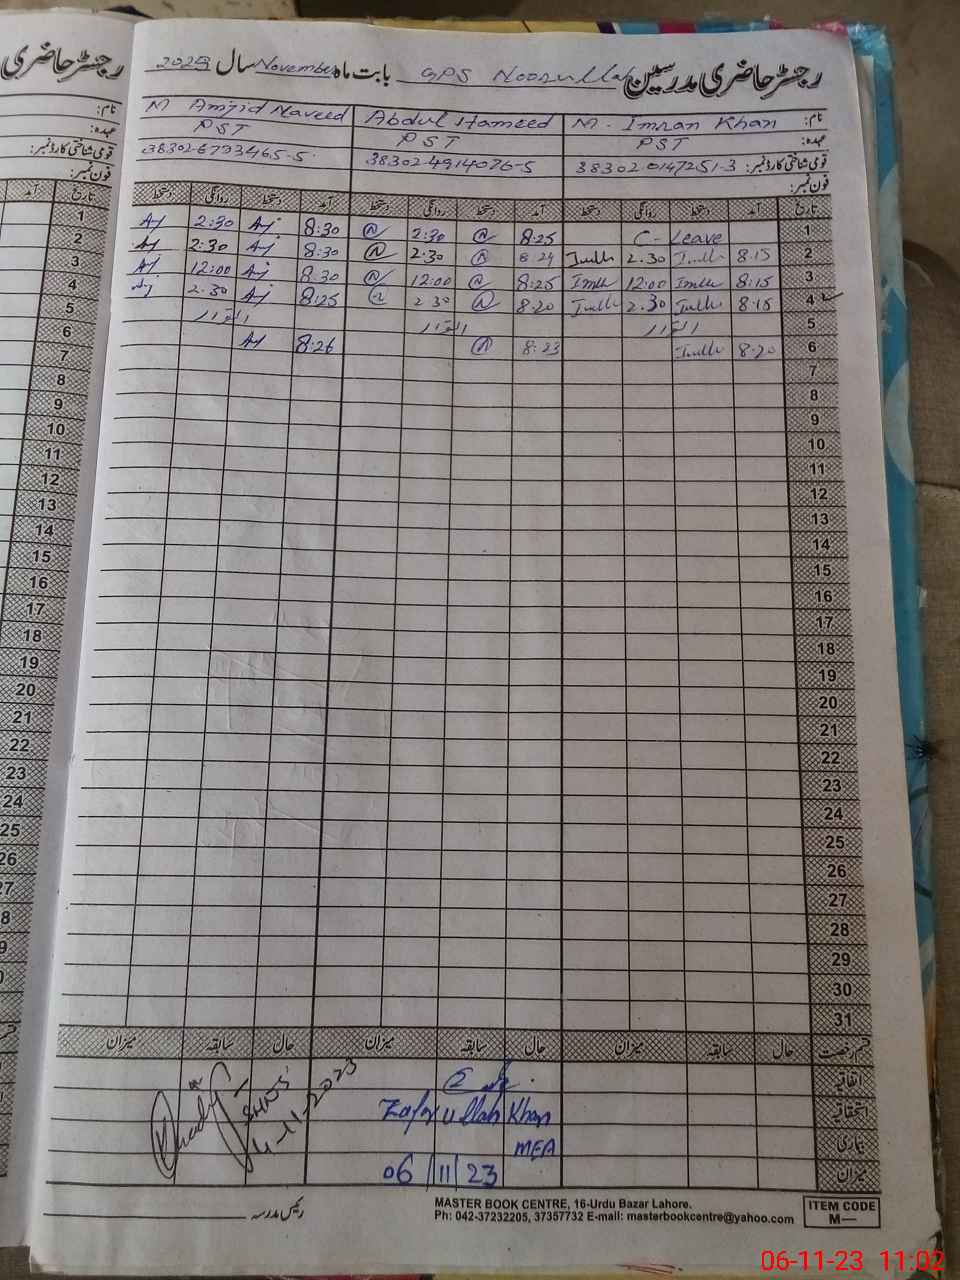 رجسٹر حاضری
رجسٹر حاضری مدرسین GPS Noorullah بابت ماہ November سال 2023
نام: M. Imran Khan Abdul Hameed M Amjid Naveed
عہدہ: PST PST PST
قومی شناختی کارڈ نمبر: 38302-0147251-3 38302-4914076-5 38302-6733465-5
فون نمبر:
تاریخ آمد دستخط روانگی دستخط آمد دستخط روانگی دستخط آمد دستخط روانگی دستخط
1 C-Leave 8:25 2:30 8:30 Aj 2:30 Aj
2 8:15 2:30 8:24 2:30 8:30 Aj 2:30 Aj
3 8:15 12:00 8:25 12:00 8:30 Aj 12:00 Aj
4 8:15 2:30 8:20 2:30 8:25 Aj 2:30 Aj
5 اتوار اتوار اتوار
6 8:20 8:23 8:26 Aj
7
8
9
10
11
12
13
14
15
16
17
18
19
20
21
22
23
24
25
26
27
28
29
30
31
قسم رخصت حال سابقہ میزان حال سابقہ میزان حال سابقہ میزان
اتفاقیہ
استحقاقیہ
بیماری
میزان
4-11-2023
Zafar ullah Khan
MEA
06/11/23
رئیس مدرسہ
MASTER BOOK CENTRE, 16-Urdu Bazar Lahore.
Ph: 042-37232205, 37357732 E-mail: masterbookcentre@yahoo.com
ITEM CODE
M—
06-11-23 11:02